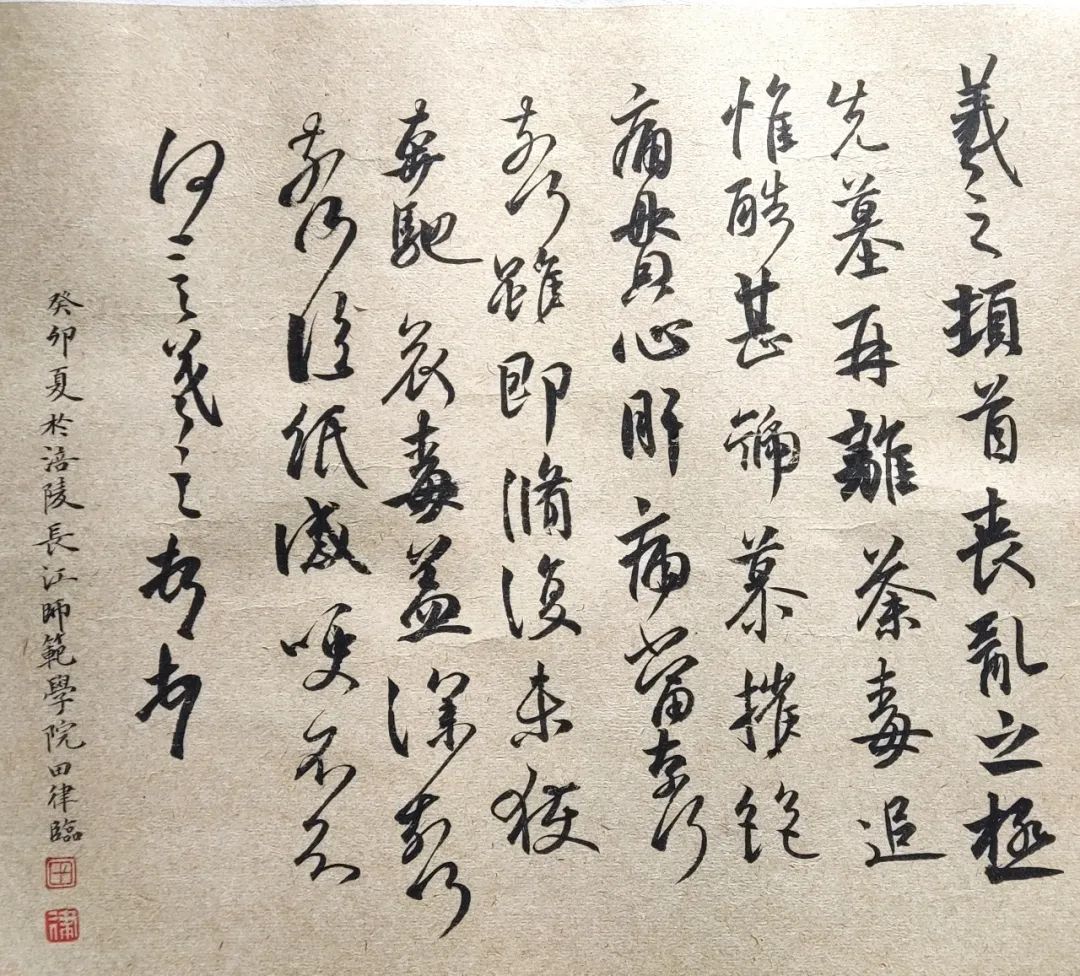 羲之頓首喪亂之極
先墓再離荼毒追
惟酷甚號慕摧絕
痛貫心肝痛當奈何
奈何雖即脩復未獲
奔馳哀毒益深奈何
奈何臨紙感哽不知
何言羲之頓首頓首
癸卯夏於涪陵長江師範學院田律臨
田
律